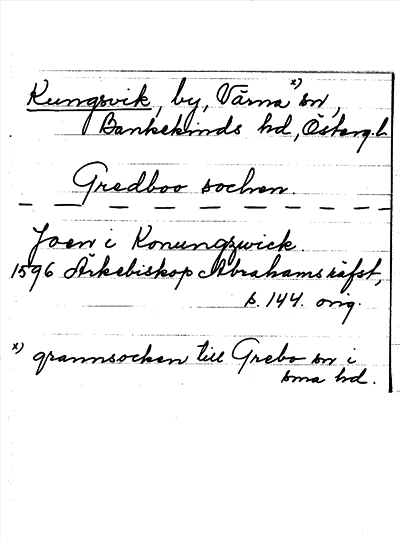 Kungsvik, by, Värna x) sn,
Bankekinds hd, Östergl.
Gredboo sochen.
Joen i Konungzwick.
1596 Ärkebiskop Abrahams räfst,
s. 144. orig.
x) grannsocken till Grebo sn i
sma hd.